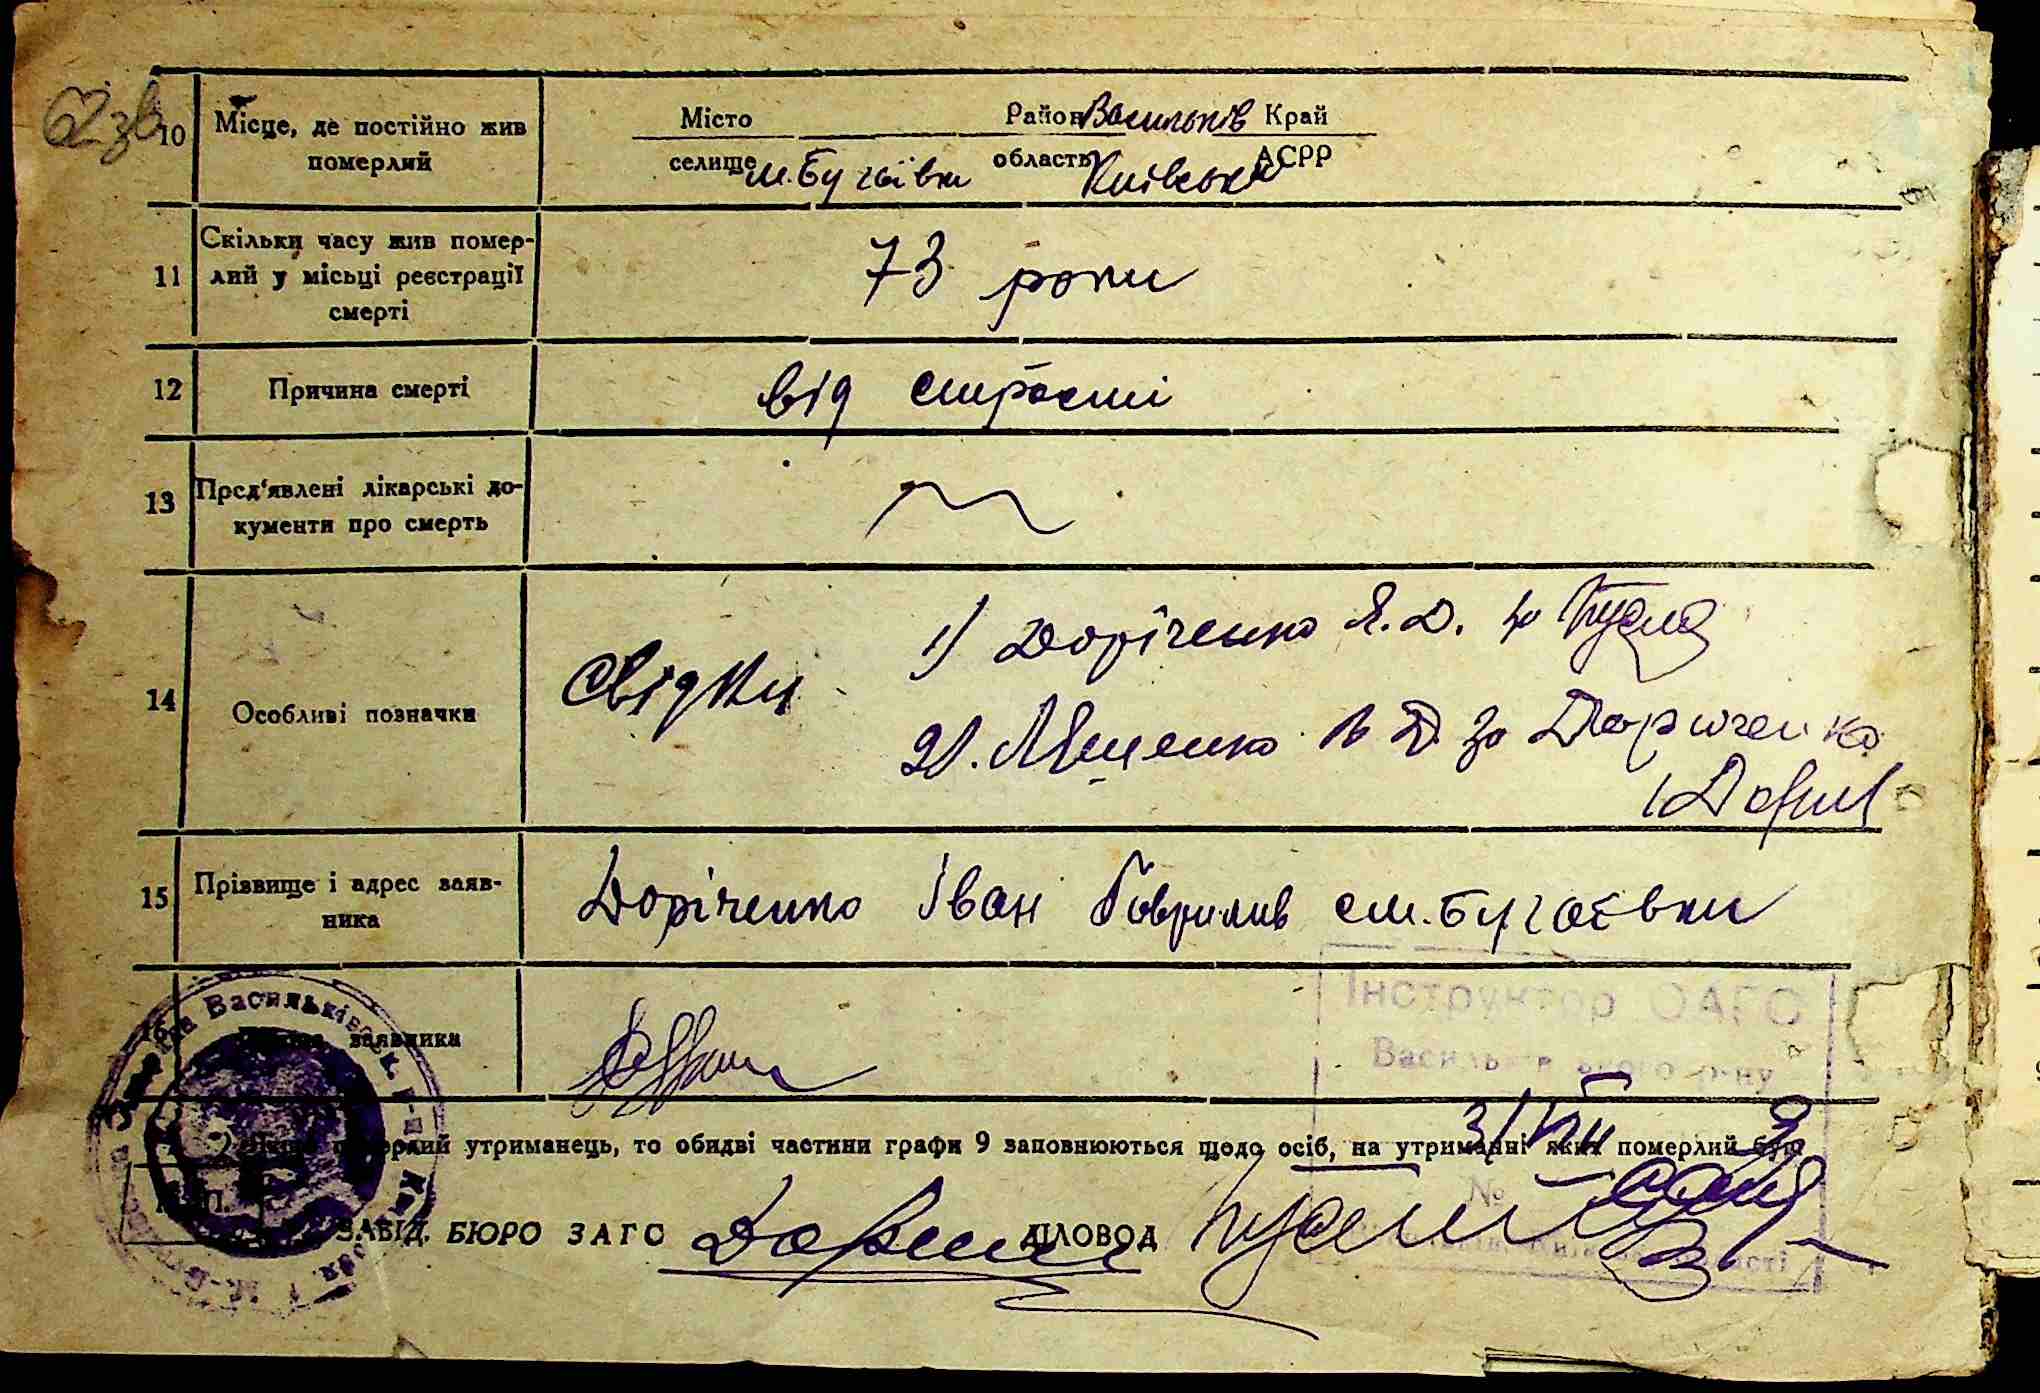 62зв
10 Місце, де постійно жив померлий
Місто Район Васильків Край
селище м. Бугаївка область Київська АСРР
11 Скільки часу жив померлий у місьці реєстрації смерті
73 роки
12 Причина смерті
від старості
13 Пред'явлені лікарські документи про смерть
14 Особливі позначки
Свідки 1) Доріченко Я. Д.
2). Ляшенко Д за Доріченко
15 Прізвище і адрес заявника
Доріченко Іван Гаврилів см. Бугаєвки
заявника
Інструктор ОАГС
Васильківського р-ну
померлий утриманець, то обидві частини графи 9 заповнюються щодо осіб, на утриманні яких померлий був
№
ЗАВІД. БЮРО ЗАГС ДІЛОВОД